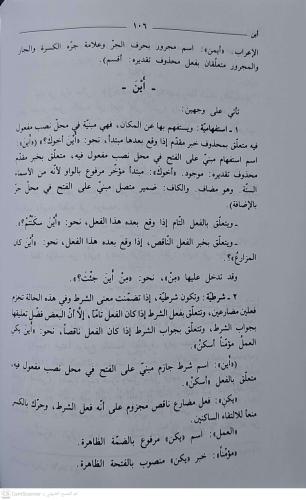 أين
١٠٦
الإعراب. «أيمن»: اسم مجرور بحرف الجرّ وعلامة جرّه الكسرة والجار
والمجرور متعلّقان بفعل محذوف تقديره: أقسم).
- أَيْنَ -
تأتي على وجهين:
١ - استفهاميّة: ويستفهم بها عن المكان، فهي مبنيّة في محلّ نصب مفعول
فيه متعلّق بمحذوف خبر مقدّم إذا وقع بعدها مبتدأ، نحو: «أَيْنَ أخوك؟» («أين»:
اسم استفهام مبنيّ على الفتح في محل نصب مفعول فيه، متعلّق بخبر مقدّم
محذوف تقديره: موجود. «أخوك»: مبتدأ مؤخّر مرفوع بالواو لأنّه من الأسماء
الستّة وهو مضاف. والكاف: ضمير متصل مبنيّ على الفتح في محل جرّ
بالإضافة).
ـ ويتعلّق بالفعل التّام إذا وقع بعده هذا الفعل، نحو: «أَيْنَ سكنْتُمْ؟»،
ـ ويتعلّق بخبر الفعل النّاقص، إذا وقع بعده هذا الفعل، نحو: «أَيْنَ كان
المزارعُ؟».
وقد تدخل عليها «مِنْ»، نحو: «مِنْ أينَ جئْتَ؟».
٢ - شرطيّة: وتكون شرطيّة، إذا تضمّنت معنى الشرط وفي هذه الحالة تجزم
فعلين مضارعين، وتتعلّق بفعل الشرط إذا كان الفعل تامًّا، إلّا أنّ البعض فضّل تعليقها
بجواب الشرط، وتتعلّق بجواب الشرط إذا كان الفعل ناقصاً، نحو: «أَيْنَ يكن
العملُ مؤمّناً أسكنْ».
«أين»: اسم شرط جازم مبنيّ على الفتح في محل نصب مفعول فيه،
متعلّق بالفعل «أسكنْ».
«يكن»: فعل مضارع ناقص مجزوم على أنّه فعل الشرط، وحرّك بالكسر
منعاً لالتقاء الساكنين.
«العمل»: اسم «يكن» مرفوع بالضمّة الظاهرة.
«مؤمّناً»: خبر «يكن» منصوب بالفتحة الظاهرة.
CamScanner